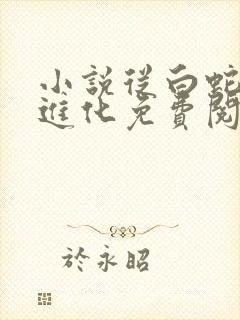 小說從白蛇
進化免費閱
於永昭